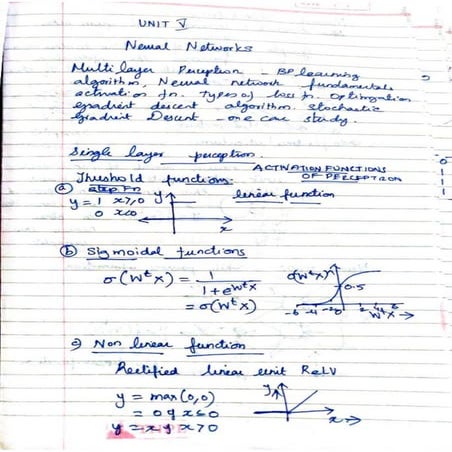 UNIT V
Neural Networks
Multi layer Perceptron - BP learning
algorithm, Neural network fundamentals
activation fn. Types of loss fn. Optimization
gradient descent algorithm. Stochastic
Gradient Descent - one case study.
Single layer perceptron.
ACTIVATION FUNCTIONS
OF PERCEPTRON
Threshold functions.
ⓐ step Fn
linear function
y = 1 x≥0 y
0 x<0
x
ⓑ Sigmoidal functions
σ(wᵗx) = 1
1+eʷᵗˣ
= σ(wᵗx)
σ(wᵗx)
0.5
-6 -4 -2 0 2 4 6
wᵗx →
c) Non linear function
Rectified linear unit ReLU
y = max(0,0)
= 0 if x≤0
y = x if x>0
y
x →